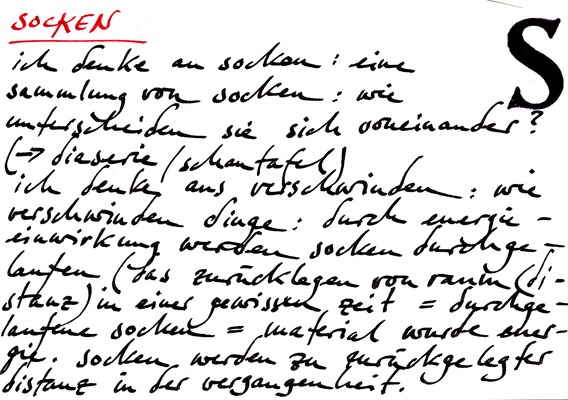 SOCKEN
S
ich denke an socken : eine
sammlung von socken : wie
unterscheiden sie sich voneinander?
(→ diaserie / schautafel)
ich denke ans verschwinden : wie
verschwinden dinge : durch energie-
einwirkung werden socken durchge-
laufen (das zurücklegen von raum (di-
stanz) in einer gewissen zeit = durchge-
laufene socken = material wurde ener-
gie. socken werden zu zurückgelegter
distanz in der vergangenheit.